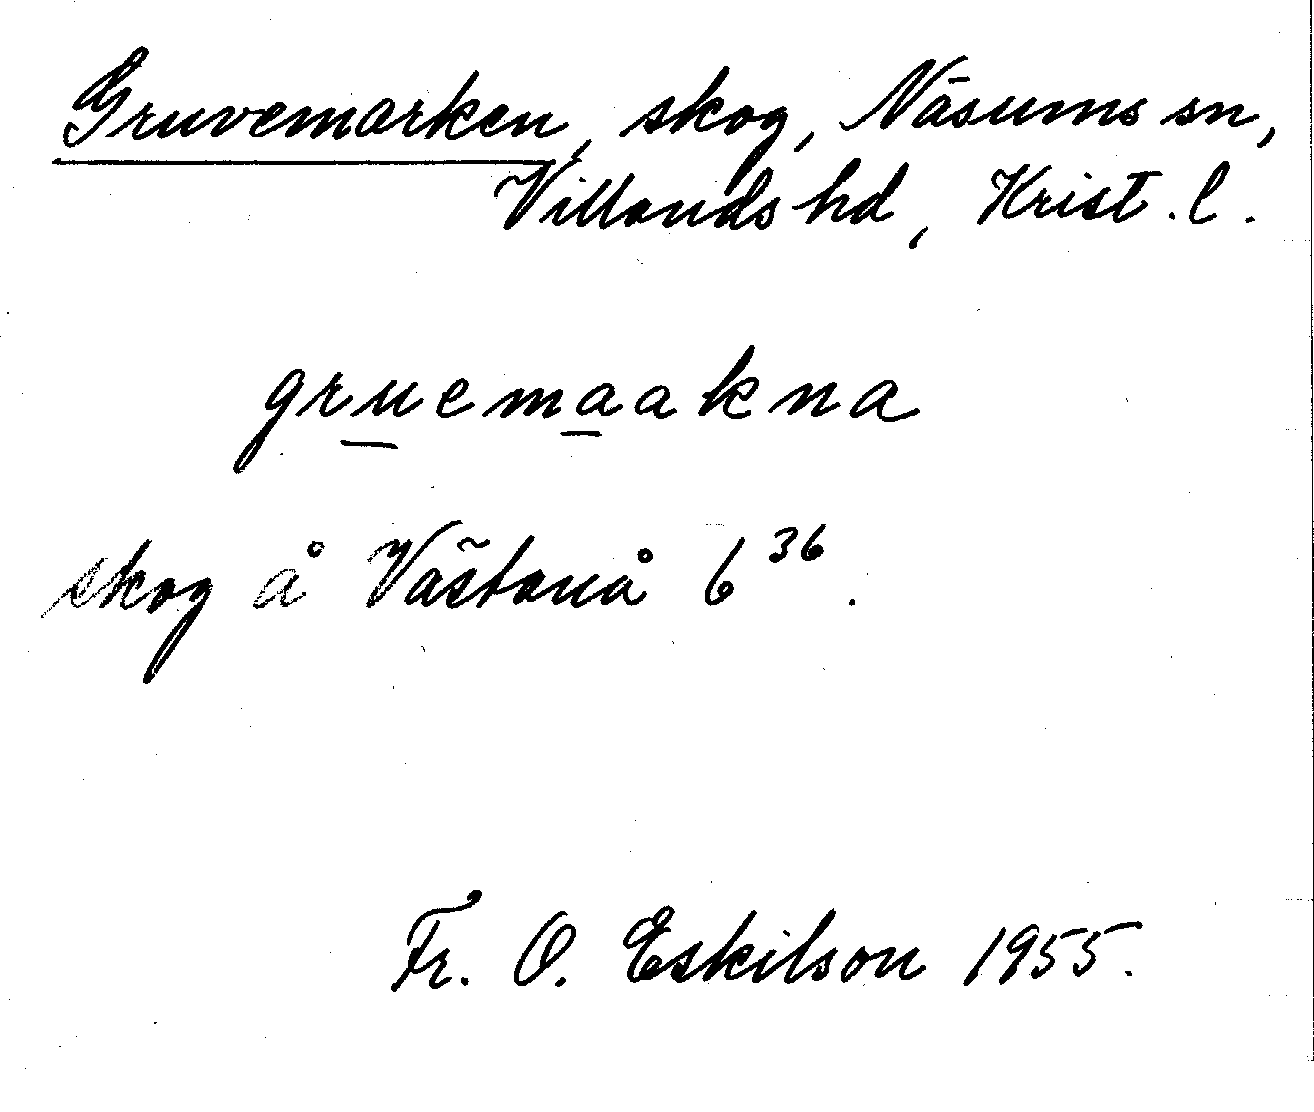 Gruvemarken, skog, Näsums sn,
Villands hd, Krist. l.
gruemaakna
skog å Västanå 6³⁶.
Fr. O. Eskilson 1955.